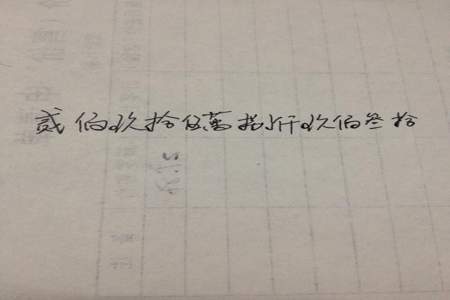 贰佰玖拾伍萬捌仟玖佰叁拾